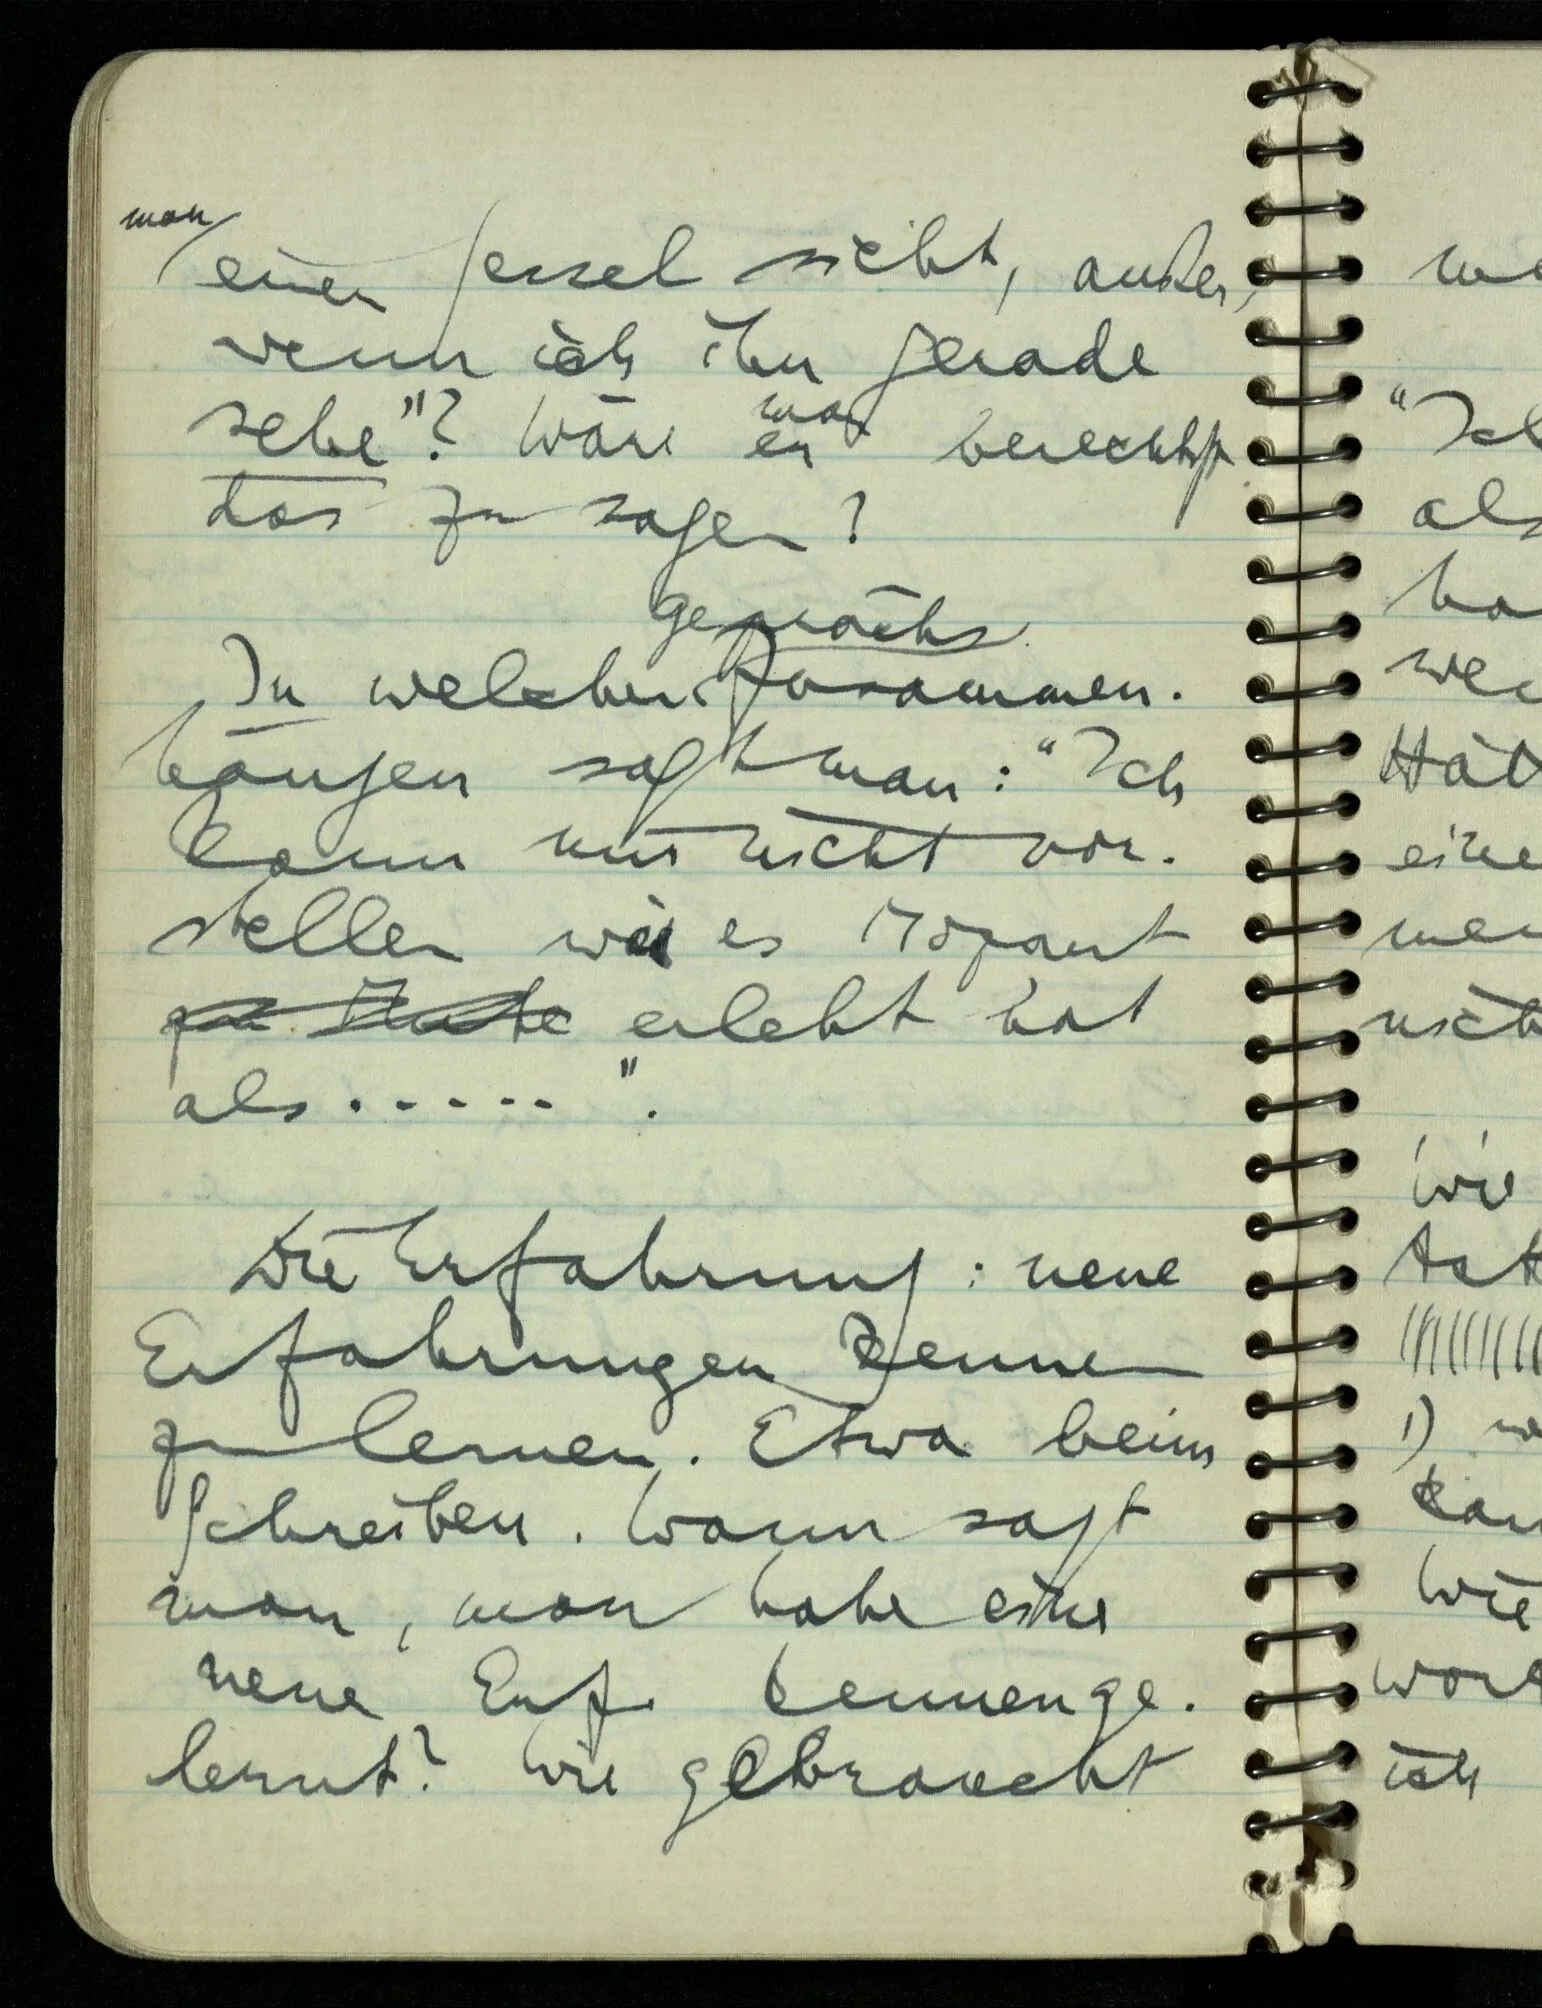 man
einen Sessel sieht, außer,
wenn ich ihn gerade
sehe"? Wäre er man berechtigt
das zu sagen?
Gesprächs
In welchen Zusammen-
hängen sagt man: "Ich
kann mir nicht vor-
stellen wie es Mozart
erlebt hat
als . . . . . ".
Die Erfahrung: neue
Erfahrungen kennen
zu lernen. Etwa beim
Schreiben. Wann sagt
man, man habe eine
neue Erf. kennenge-
lernt? Wie gebraucht
"Ich
als
Hät
eine
nich
wie
1)
Wie
ich